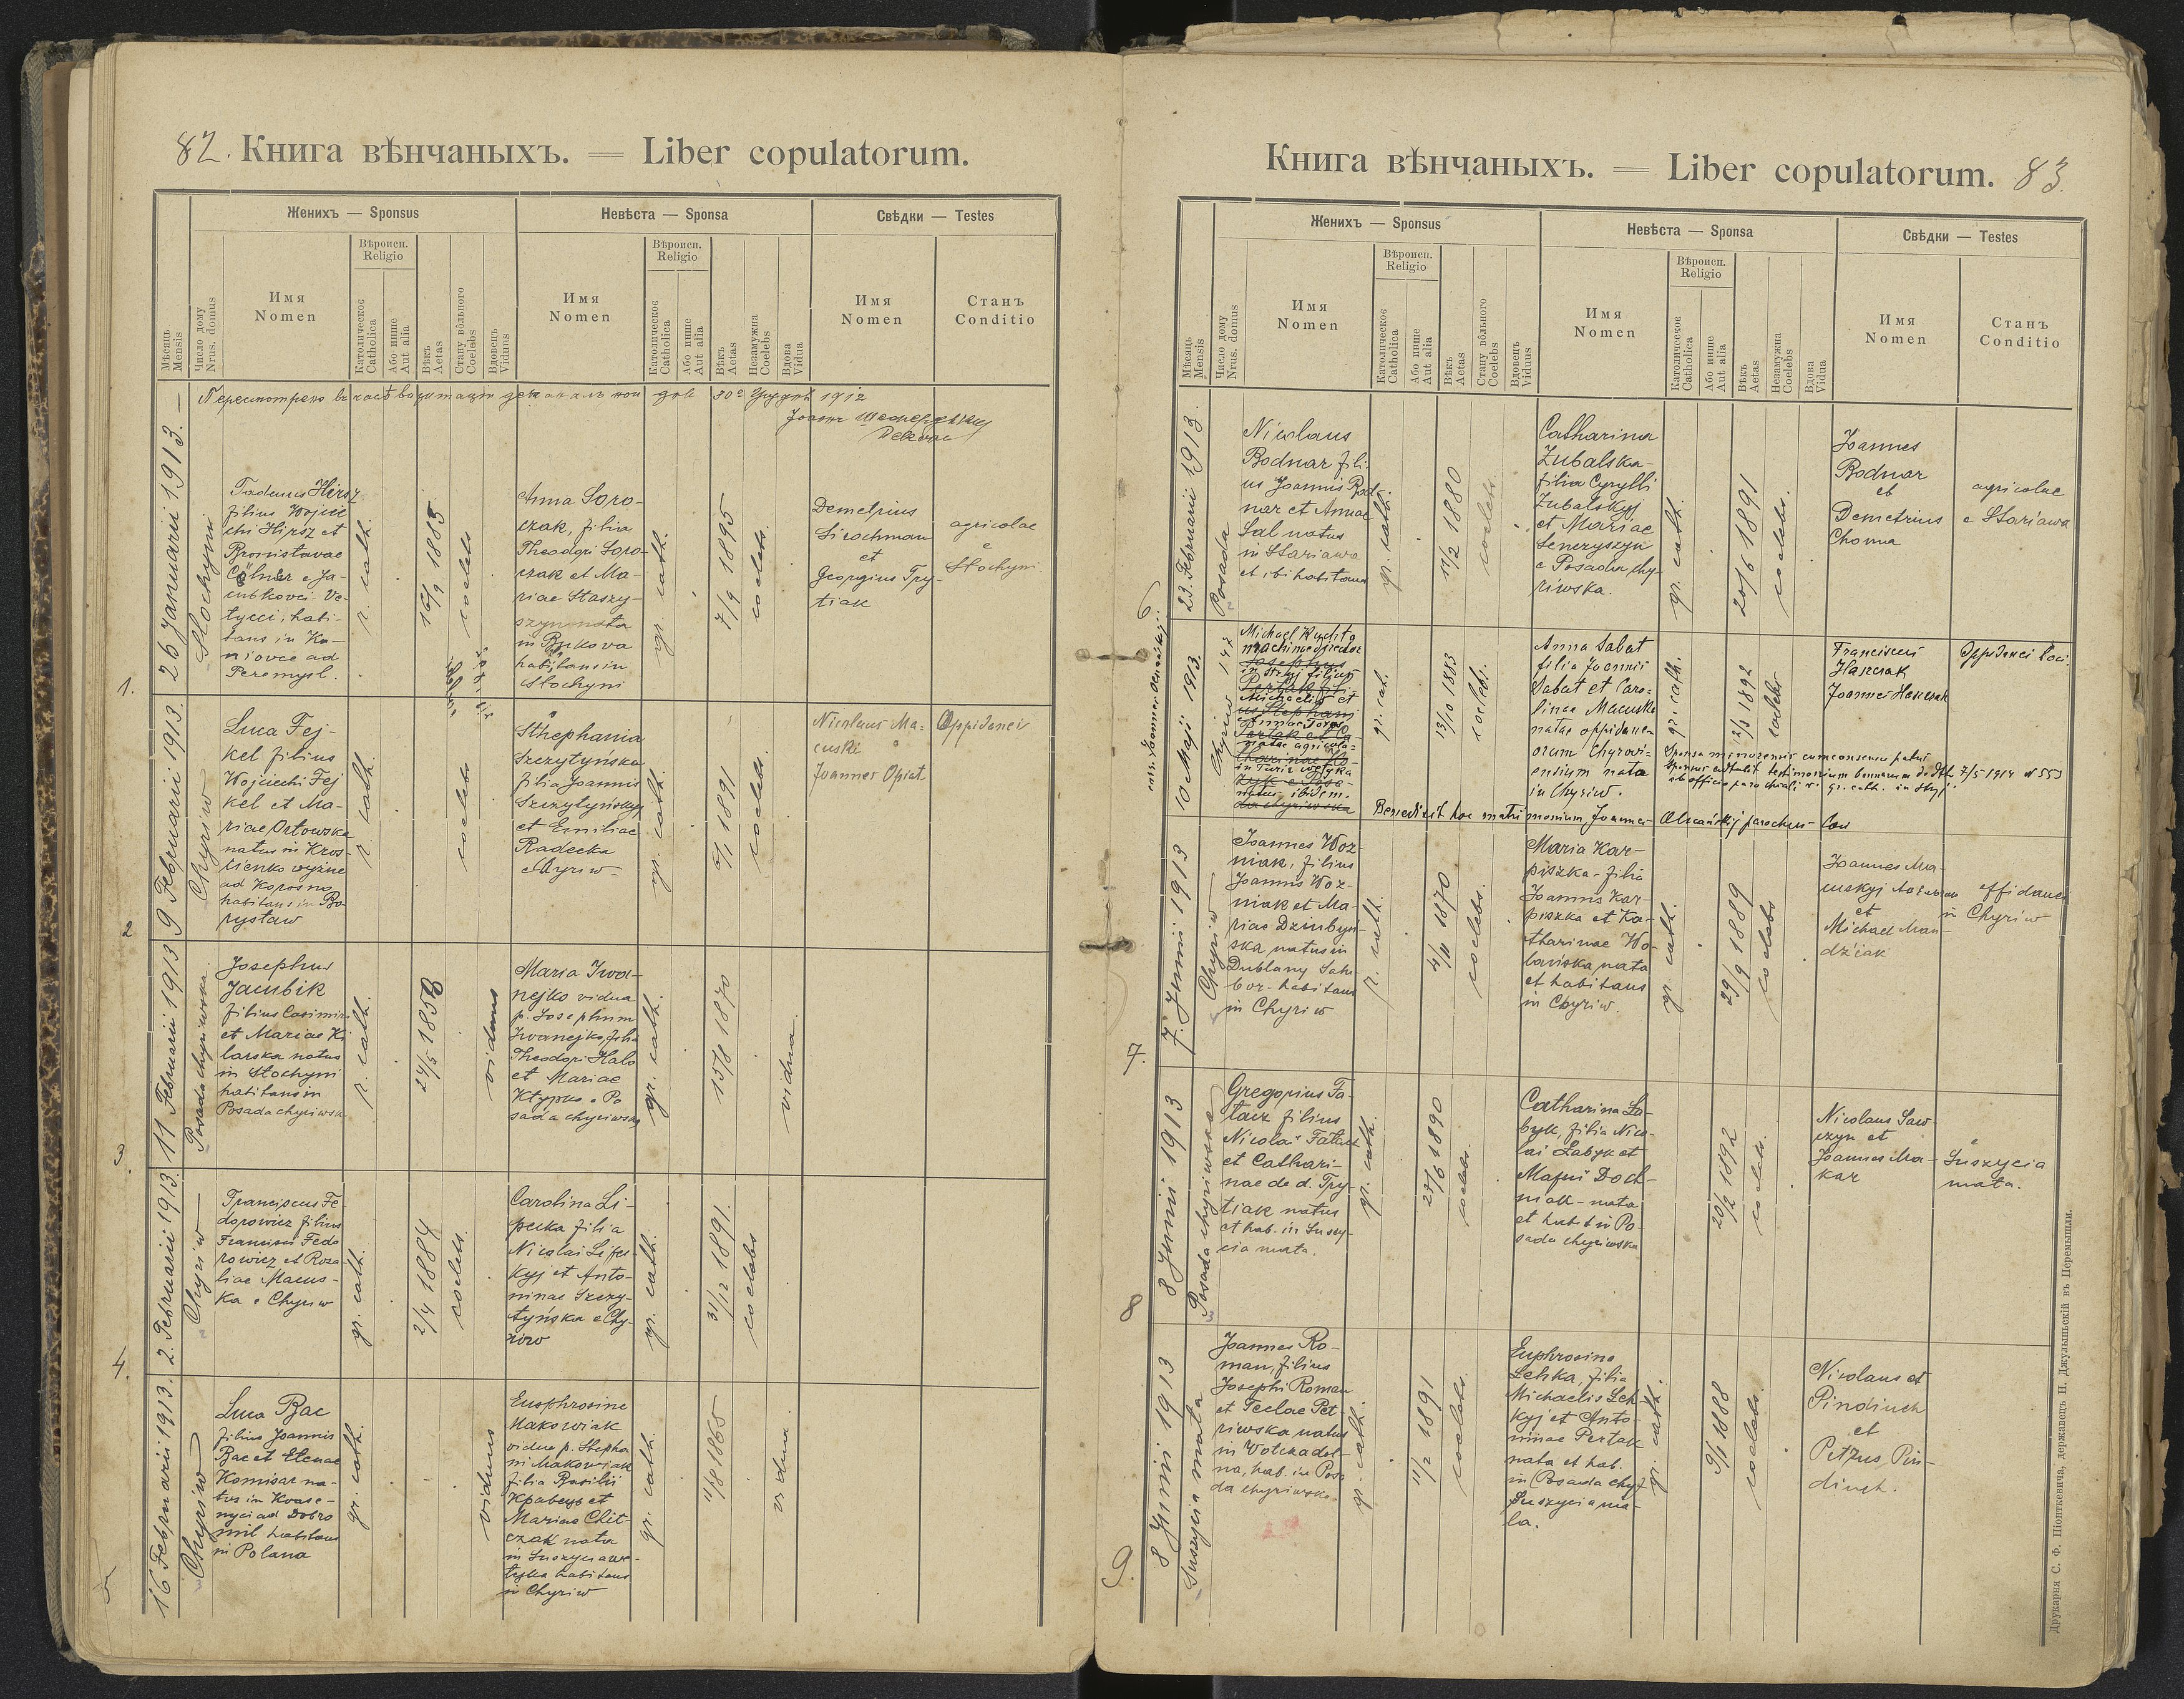 82. Книга вѣнчаныхъ. — Liber copulatorum.
Женихъ — Sponsus
Невѣста — Sponsa
Свѣдки — Testes
Мѣсяць
Mensis
Число дому
Nrus. domus
Имя
Nomen
Вѣроисп.
Religio
Католическое
Catholica
Або инше
Aut alia
Вѣкъ
Aetas
Стану вôльного
Coelebs
Вдовецъ
Viduus
Имя
Nomen
Вѣроисп.
Religio
Католическое
Catholica
Або инше
Aut alia
Вѣкъ
Aetas
Незамужна
Coelebs
Вдова
Vidua
Имя
Nomen
Станъ
Conditio
1912
1.
26 Januarii 1913.
Slochyni
Tadeus Hirsz
filius Wojcie
chi Hirsz et
Bronislavae
e Ja-
habi-
tans in
niovce ad
Peremysl.
r. cath.
16/9 1885
coelebs
Anna Soro-
czak, filia
Theodori Soro-
czak et Ma-
riae Staszy-
szyn nata
in
habitans in
Slochyni
gr. cath.
7/9 1895
coelebs
Demetrius
Sirochman
et
Georgius Try-
tiak
agricolae
e
Slochyni
2
9 Februarii 1913.
Chyriw
Luca Fej-
kel filius
Wojciechi Fej
kel et Ma-
riae Orlowska
natus in Kros-
cienko wyżne
ad Korosno
habitans in Bo-
ryslaw
r. cath.
coelebs
Sthephania
Szczytyńska
filia Joannis
Szczytyńskyj
et Emiliae
Radecka
Chyriw
gr. cath.
6/1 1891
coelebs
Nicolaus Ma-
cuski
Joannes Opiat
Oppidaneis
3.
11 Februarii 1913
Posada chyriwska
Josephus
Jacubik
filius Casimiri
et Mariae Ki
larska natus
in Slochyni
habitans in
Posada chyriwska
r. cath.
24/5 1858
viduus
Maria Iwa-
nejko vidua
p. Josephum
Iwanejko filia
Theodori Halo
et Mariae
e Po
sada chyriwska
gr. cath.
15/8 1870
vidua
4.
2. Februarii 1913.
Chyriw
Franciscus Fe
dorowicz filius
Francisci Fedo
rowicz et Rosa-
liae Macus-
ka e Chyriw
gr. cath.
2/4 1884
coelebs
Carolina Li-
pecka filia
Nicolai Lipec-
kyj et Anto-
ninae Szczy-
tyńska e Chy-
riow
gr. cath.
31/12 1891.
coelebs
5
16 Februarii 1913.
Chyriw
Luca Bac
filius Joannis
Bac et Elenae
Komisar na-
tus in Kwase-
nyci ad Dobro
mil habitans
in Polana
gr. cath.
viduus
Eusphrosine
Makowiak
vidua p. Stepha
ni Makowiak
filia Basilii
Кравець et
Mariae Chit-
czak nata
in Suszycia we-
lyka habitans
in Chyriw
gr. cath.
11/8 1865
vidua
Книга вѣнчаныхъ. — Liber copulatorum. 83.
Женихъ — Sponsus
Невѣста — Sponsa
Свѣдки — Testes
Мѣсяць
Mensis
Число дому
Nrus. domus
Имя
Nomen
Вѣроисп.
Religio
Католическое
Catholica
Або инше
Aut alia
Вѣкъ
Aetas
Стану вôльного
Coelebs
Вдовецъ
Viduus
Имя
Nomen
Вѣроисп.
Religio
Католическое
Catholica
Або инше
Aut alia
Вѣкъ
Aetas
Незамужна
Coelebs
Вдова
Vidua
Имя
Nomen
Станъ
Conditio
23. Februarii 1913.
Posada
Nicolaus
Bodnar fili-
us Joannis Bod-
nar et Annae
Sal natus
in Stariawa
et ibi habitans
gr. cath.
11/2 1880
coelebs
Catharina
Zubalska-
filia Cyrylli
Zubalskyj
et Mariae
Senczyszyn
e Posada chy-
riwska.
gr. cath.
20/6 1891
coelebs.
Joannes
Bodnar
et
Demetrius
Choma
agricolae
e Stariawa
6
10 Maji 1913.
Chyriw 147
Michael Rychta
gr. cat.
13/10 1883
coelebs.
Anna Sabat
filia Joannis
Sabat et Caro-
linae Macuska
natae oppidane-
orum Chyrovi-
ensium nata
in Chyriw.
gr. cath.
1892
coelebs
Franciscus
Haszczak
Joannes Haszczak
Oppidanei loci.
Sponsa minorennis cum consensu patris
Benedixit hoc matrimonium Joannes parochus loci
7.
7. Junii 1913
Chyriw
Joannes Woz-
niak, filius
Joannis Woz-
niak et Ma-
riae Dziubyn-
ska natus in
Dublany Sam-
bor- habitans
in Chyriw
r. cath.
4/11 1870
coelebs.
Maria Kar-
piszka- filia
Joannis Kar-
piszka et Ka-
tharinae Wo-
lanska nata
et habitans
in Chyriw.
gr. cath.
29/9 1889
coelebs
Joannes Ma-
cuskyj
et
Michael Man-
dziak
in Chyriw
8
8 Junii 1913
Posada chyriwska
Gregorius Fa-
tacz filius
Nicolai Fatacz
et Cathari-
nae de d. Try-
tiak natus
et hab. in Suszy-
cia mala.
gr. cath.
25/6 1890
coelebs.
Catharina La-
byk, filia Nico-
lai Labyk et
Doch-
niak- nata
et hab. in Po-
sada chyriwska
gr. cath.
20/2 1892
coelebs.
Nicolaus Saw-
czyn et
Joannes Ma-
kar
e
Suszycia
mala.
9.
8 Junii 1913
Suszycia mala
Joannes Ro-
man, filius
Josephi Roman
et Teclae Pet-
riwska natus
in Wolcza dol-
na, hab. in Posa
da chyriwska.
gr. cath.
11/2 1891
coelebs
Euphrosina
Lehka, filia
Michaelis Leh-
kyj et Anto-
ninae Pertak
nata et hab.
in Posada chyr
Suszycia ma-
la.
gr. cath.
9/1 1888
coelebs.
Nicolaus et
Pindiuch
et
Petrus Pin-
diuch.
Друкарня С. Ф. Піонткевича, державець Н. Джулыньскій въ Перемышли.